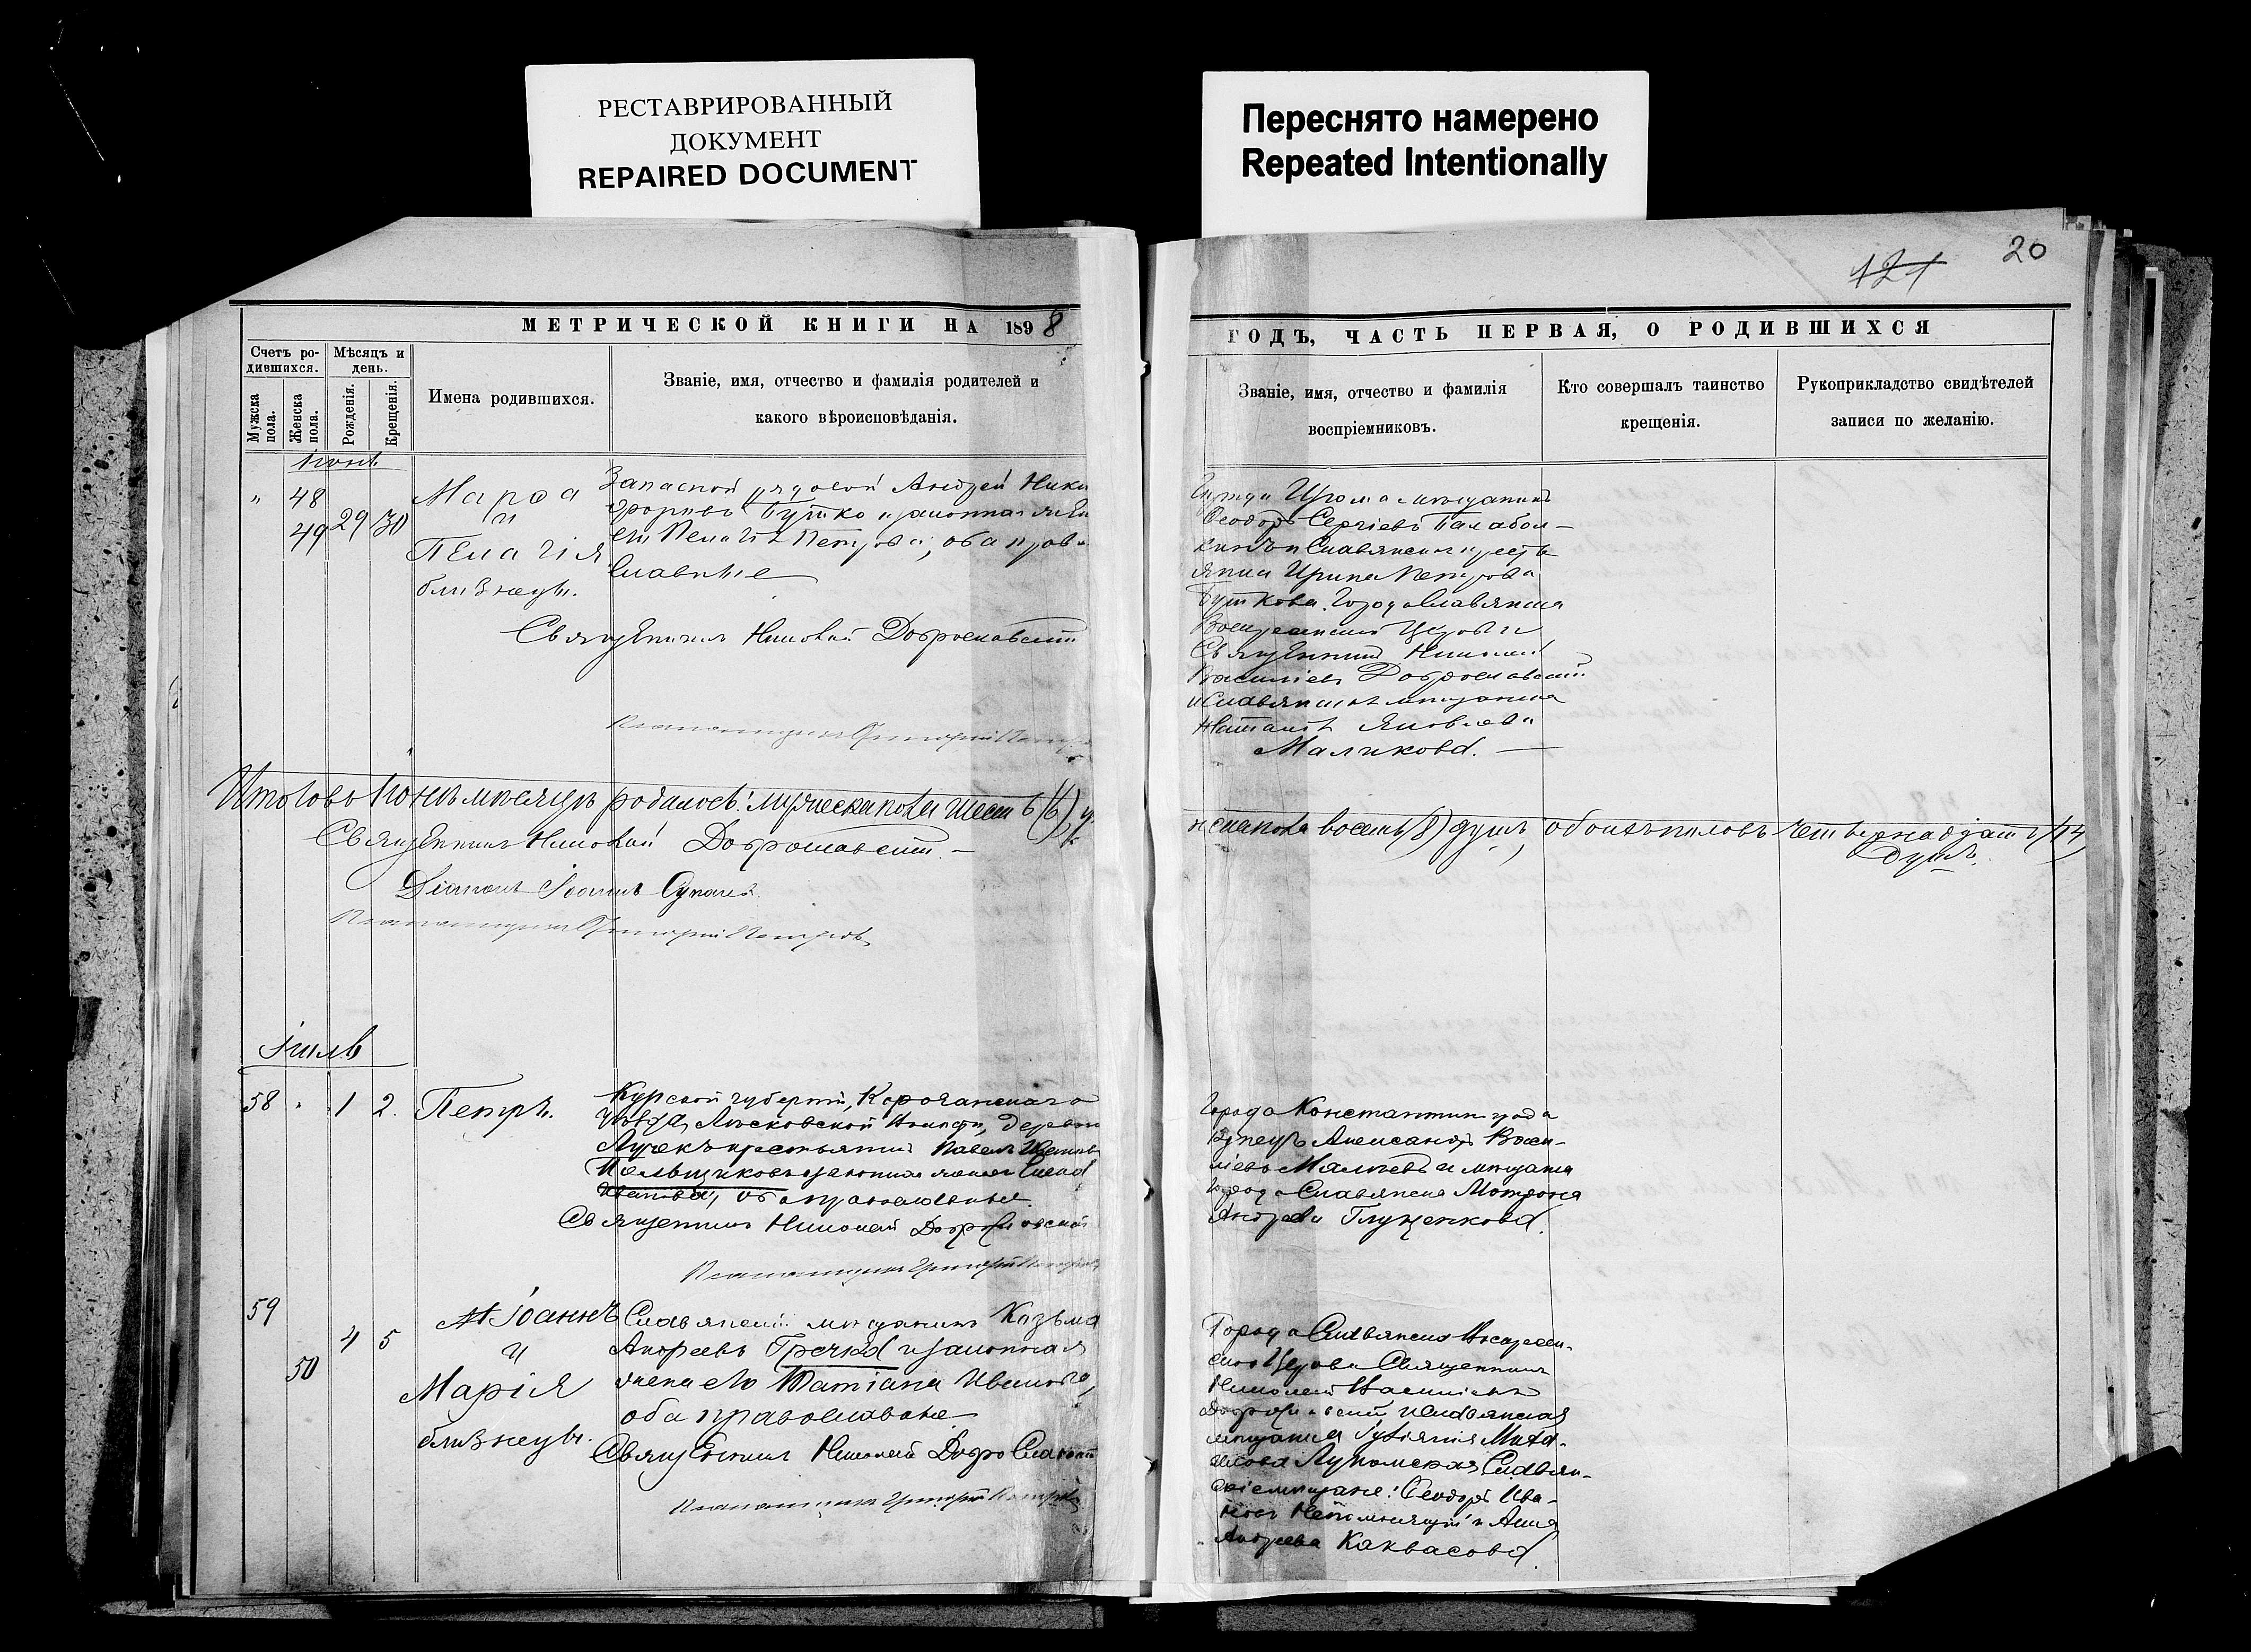 РЕСТАВРИРОВАННЫЙ
ДОКУМЕНТ
REPAIRED DOCUMENT
Переснято намерено
Repeated Intentionally
121
20
МЕТРИЧЕСКОЙ КНИГИ НА 1898
ГОДЪ, ЧАСТЬ ПЕРВАЯ, О РОДИВШИХСЯ
Счетъ ро-
дившихся.
Мѣсяцъ и
день.
Мужска
пола.
Женска
пола.
Рожденія.
Крещенія.
Имена родившихся.
Званіе, имя, отчество и фамилія родителей и
какого вѣроисповѣданія.
Званіе, имя, отчество и фамилія
воспріемниковъ.
Кто совершалъ таинство
крещенія.
Рукоприкладство свидѣтелей
записи по желанію.
Іюнь
" 48
49 29 30
Марѳа
и
Пелагія
близнецы.
Запасной рядовой Андрей Ники
форовъ Бутко и законная жена
его Пелагія Петрова, оба право
славные
Священникъ Николай Доброславскій
мѣщанинъ
Ѳеодоръ Сергіевъ
Ирина Петрова
Буткова. Города Славянска
Воскресенской Церкви
Священникъ Николай
Васильевъ Доброславскій
и Славянская мѣщанка
Наталія Яковлева
Маликова.
Итого въ Іюнѣ мѣсяцѣ родилось: мужеска пола шесть (6)
женска пола восемь (8) душъ, обоихъ половъ четырнадцать (14)
душъ.
Священникъ Николай Доброславскій
Діаконъ Іоаннъ
Псаломщикъ Григорій Петровъ
Іюль
58 " 1 2. Петръ.
Курской губерніи, Корочанскаго
уѣзда, волости, деревни
крестьянинъ Павелъ
Мельщиковъ и законная жена его
Иванова, оба православные
Священникъ Николай Доброславской
Псаломщикъ Григорій Петровъ
Города Константинограда
Купецъ Александръ Васи-
ліевъ и мѣщанка
города Славянска Матрона
Андреева Глущенкова.
59
50
4 5
Іоаннъ
и
Марія
близнецы.
Славянскій мѣщанинъ Козьма
Андреевъ Гречка и законная
жена его Татіана Иванова,
оба православные
Священникъ Николай Доброславскій
Псаломщикъ Григорій Петровъ
Города Славянска Воскресен-
ской Церкви Священникъ
Николай Васильевъ
Доброславскій и Славянская
мѣщанка Миха-
йлова Славян-
скіе мѣщане: Ѳеодоръ Ива-
новъ Непомнящій и Анна
Андреева Каквасова.